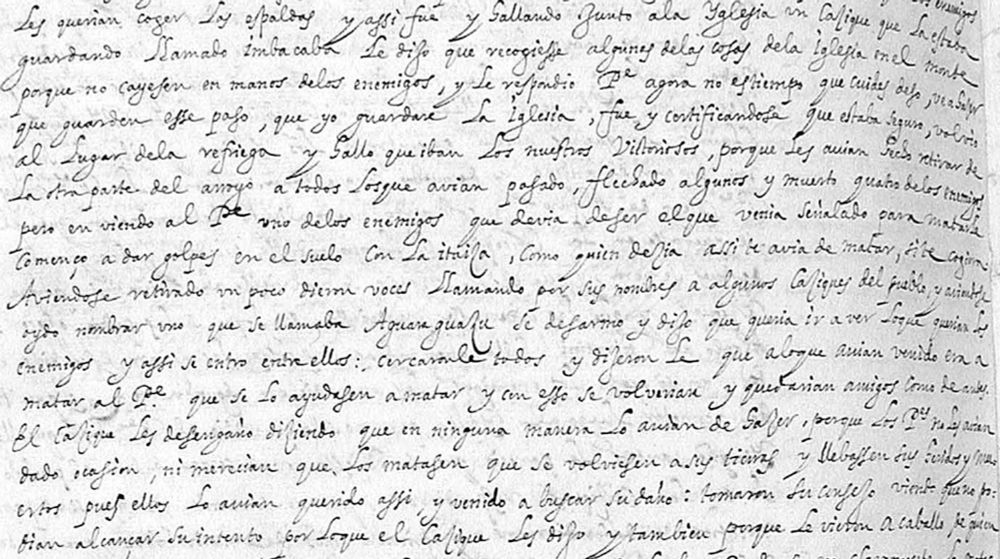 les querian coger las espaldas y assi fue y hallando junto ala Yglesia un Casique que la estaba
guardando llamado imbacaba le dijo que recogiesse algunes delas cosas dela iglesia en el monte
porque no cayesen en manos delos enemigos, y le respondio Pe agora no estiempo que cuides deso, ve a hazer
que guarden esse paso, que yo guardare la Iglesia, fue y certificandose que estaba seguro, volvio
al lugar dela refriega y hallo que iban los nuestros victoriosos, porque les avian hecho retirar de
la otra parte del arroyo a todos losque avian pasado, flechado algunos y muerto quatro delos enemigos
pero en viendo al Pe uno delos enemigos que devia deser elque venia señalado para matarle
començo a dar golpes en el suelo con la itaiza, como quien dezia assi te avia de matar, si te cogiera
Aviendose retirado un poco dieron voces llamando por sus nombres a algunos Casiques del pueblo, y aviendose
oydo nombrar uno que se llamaba Aguaraguazu se desarmo y dijo que queria ir a ver loque querian los
enemigos y assi se entro entre ellos: cercaronle todos y dijeron le que aloque avian venido era a
matar al Pe. que se lo ayudasen a matar y con esso se volverian y quedarian amigos como de antes.
El Casique les desengaño diziendo que en ninguna manera lo avian de hazer, porque los Pes no les avian
dado ocasion, ni merecian que los matasen que se volviesen a sus tierras y llebassen sus heridos y mu-
ertos pues ellos lo avian querido assi, y venido a buscar su daño: tomaron su consejo viendo que no po-
dian alcançar su intento por loque el Casique les dijo y tambien porque le vieron a caballo